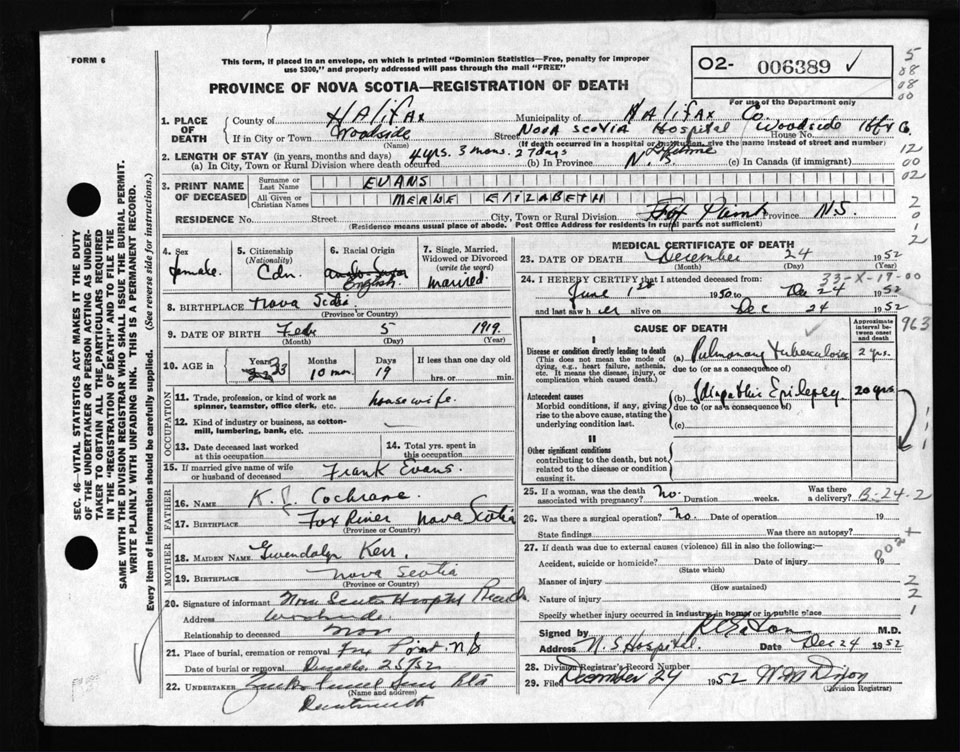 FORM 6
This form, if placed in an envelope, on which is printed "Dominion Statistics—Free, penalty for improper
use $300," and properly addressed will pass through the mail "FREE"
O2- 006389 ✓
For use of the Department only
PROVINCE OF NOVA SCOTIA—REGISTRATION OF DEATH
SEC. 46—VITAL STATISTICS ACT MAKES IT THE DUTY
OF THE UNDERTAKER OR PERSON ACTING AS UNDER-
TAKER TO OBTAIN ALL THE PARTICULARS REQUIRED
IN THE "REGISTRATION OF DEATH" AND TO FILE THE
SAME WITH THE DIVISION REGISTRAR WHO SHALL ISSUE THE BURIAL PERMIT.
WRITE PLAINLY WITH UNFADING INK. THIS IS A PERMANENT RECORD.
Every item of information should be carefully supplied. (See reverse side for instructions.)
1. PLACE OF DEATH
County of HALIFAX Municipality of HALIFAX Co.
If in City or Town Woodside Street NOVA SCOTIA Hospital Woodside House No.
(Name) (If death occurred in a hospital or institution, give the name instead of street and number)
2. LENGTH OF STAY (in years, months and days) 4 yrs. 3 mons. 27 days
(a) In City, Town or Rural Division where death occurred (b) In Province (c) In Canada (if immigrant)
3. PRINT NAME OF DECEASED
Surname or Last Name EVANS
All Given or Christian Names MERLE ELIZABETH
RESIDENCE No. Street City, Town or Rural Division Fox Point Province N.S.
(Residence means usual place of abode. Post Office Address for residents in rural parts not sufficient)
4. Sex female
5. Citizenship (Nationality) Cdn.
6. Racial Origin English
7. Single, Married, Widowed or Divorced (write the word) married
8. BIRTHPLACE Nova Scotia
(Province or Country)
9. DATE OF BIRTH Feb 5 1919
(Month) (Day) (Year)
10. AGE in Years 33 Months 10 mon. Days 19 If less than one day old hrs. or min.
OCCUPATION
11. Trade, profession, or kind of work as spinner, teamster, office clerk, etc. housewife.
12. Kind of industry or business, as cotton-mill, lumbering, bank, etc. —
13. Date deceased last worked at this occupation
14. Total yrs. spent in this occupation
15. If married give name of wife or husband of deceased Frank Evans.
FATHER
16. NAME K. J. Cochrane
17. BIRTHPLACE Fox River Nova Scotia
(Province or Country)
MOTHER
18. MAIDEN NAME Gwendolyn Kerr.
19. BIRTHPLACE Nova Scotia
(Province or Country)
20. Signature of informant Nova Scotia Hospital Records
Address Woodside
Relationship to deceased
21. Place of burial, cremation or removal Fox Point N S
Date of burial or removal 25/52
22. UNDERTAKER
(Name and address)
Dartmouth
MEDICAL CERTIFICATE OF DEATH
23. DATE OF DEATH December 24 1952
(Month) (Day) (Year)
33-X-19-00
24. I HEREBY CERTIFY that I attended deceased from:
June 1st 1950 to Dec 24 1952
and last saw her alive on Dec 24 1952
CAUSE OF DEATH
Approximate interval between onset and death
963
I
Disease or condition directly leading to death
(This does not mean the mode of dying, e.g., heart failure, asthenia, etc. It means the disease, injury, or complication which caused death.)
(a) Pulmonary tuberculosis 2 yrs.
due to (or as a consequence of)
Antecedent causes
Morbid conditions, if any, giving rise to the above cause, stating the underlying condition last.
(b) Idiopathic Epilepsy 20 yrs
due to (or as a consequence of)
(c)
II
Other significant conditions
contributing to the death, but not related to the disease or condition causing it.
25. If a woman, was the death associated with pregnancy? No. Duration weeks. Was there a delivery?
B-24-2
26. Was there a surgical operation? No. Date of operation 19
State findings Was there an autopsy?
27. If death was due to external causes (violence) fill in also the following:—
Accident, suicide or homicide? Date of injury 19
(State which)
Manner of injury
(How sustained)
Nature of injury
Specify whether injury occurred in industry, in home, or in public place
Signed by M.D.
Address N. S Hospital. Date Dec 24 1952
28. Division Registrar's Record Number
29. Filed December 24 1952 W. M. Dixon
(Division Registrar)